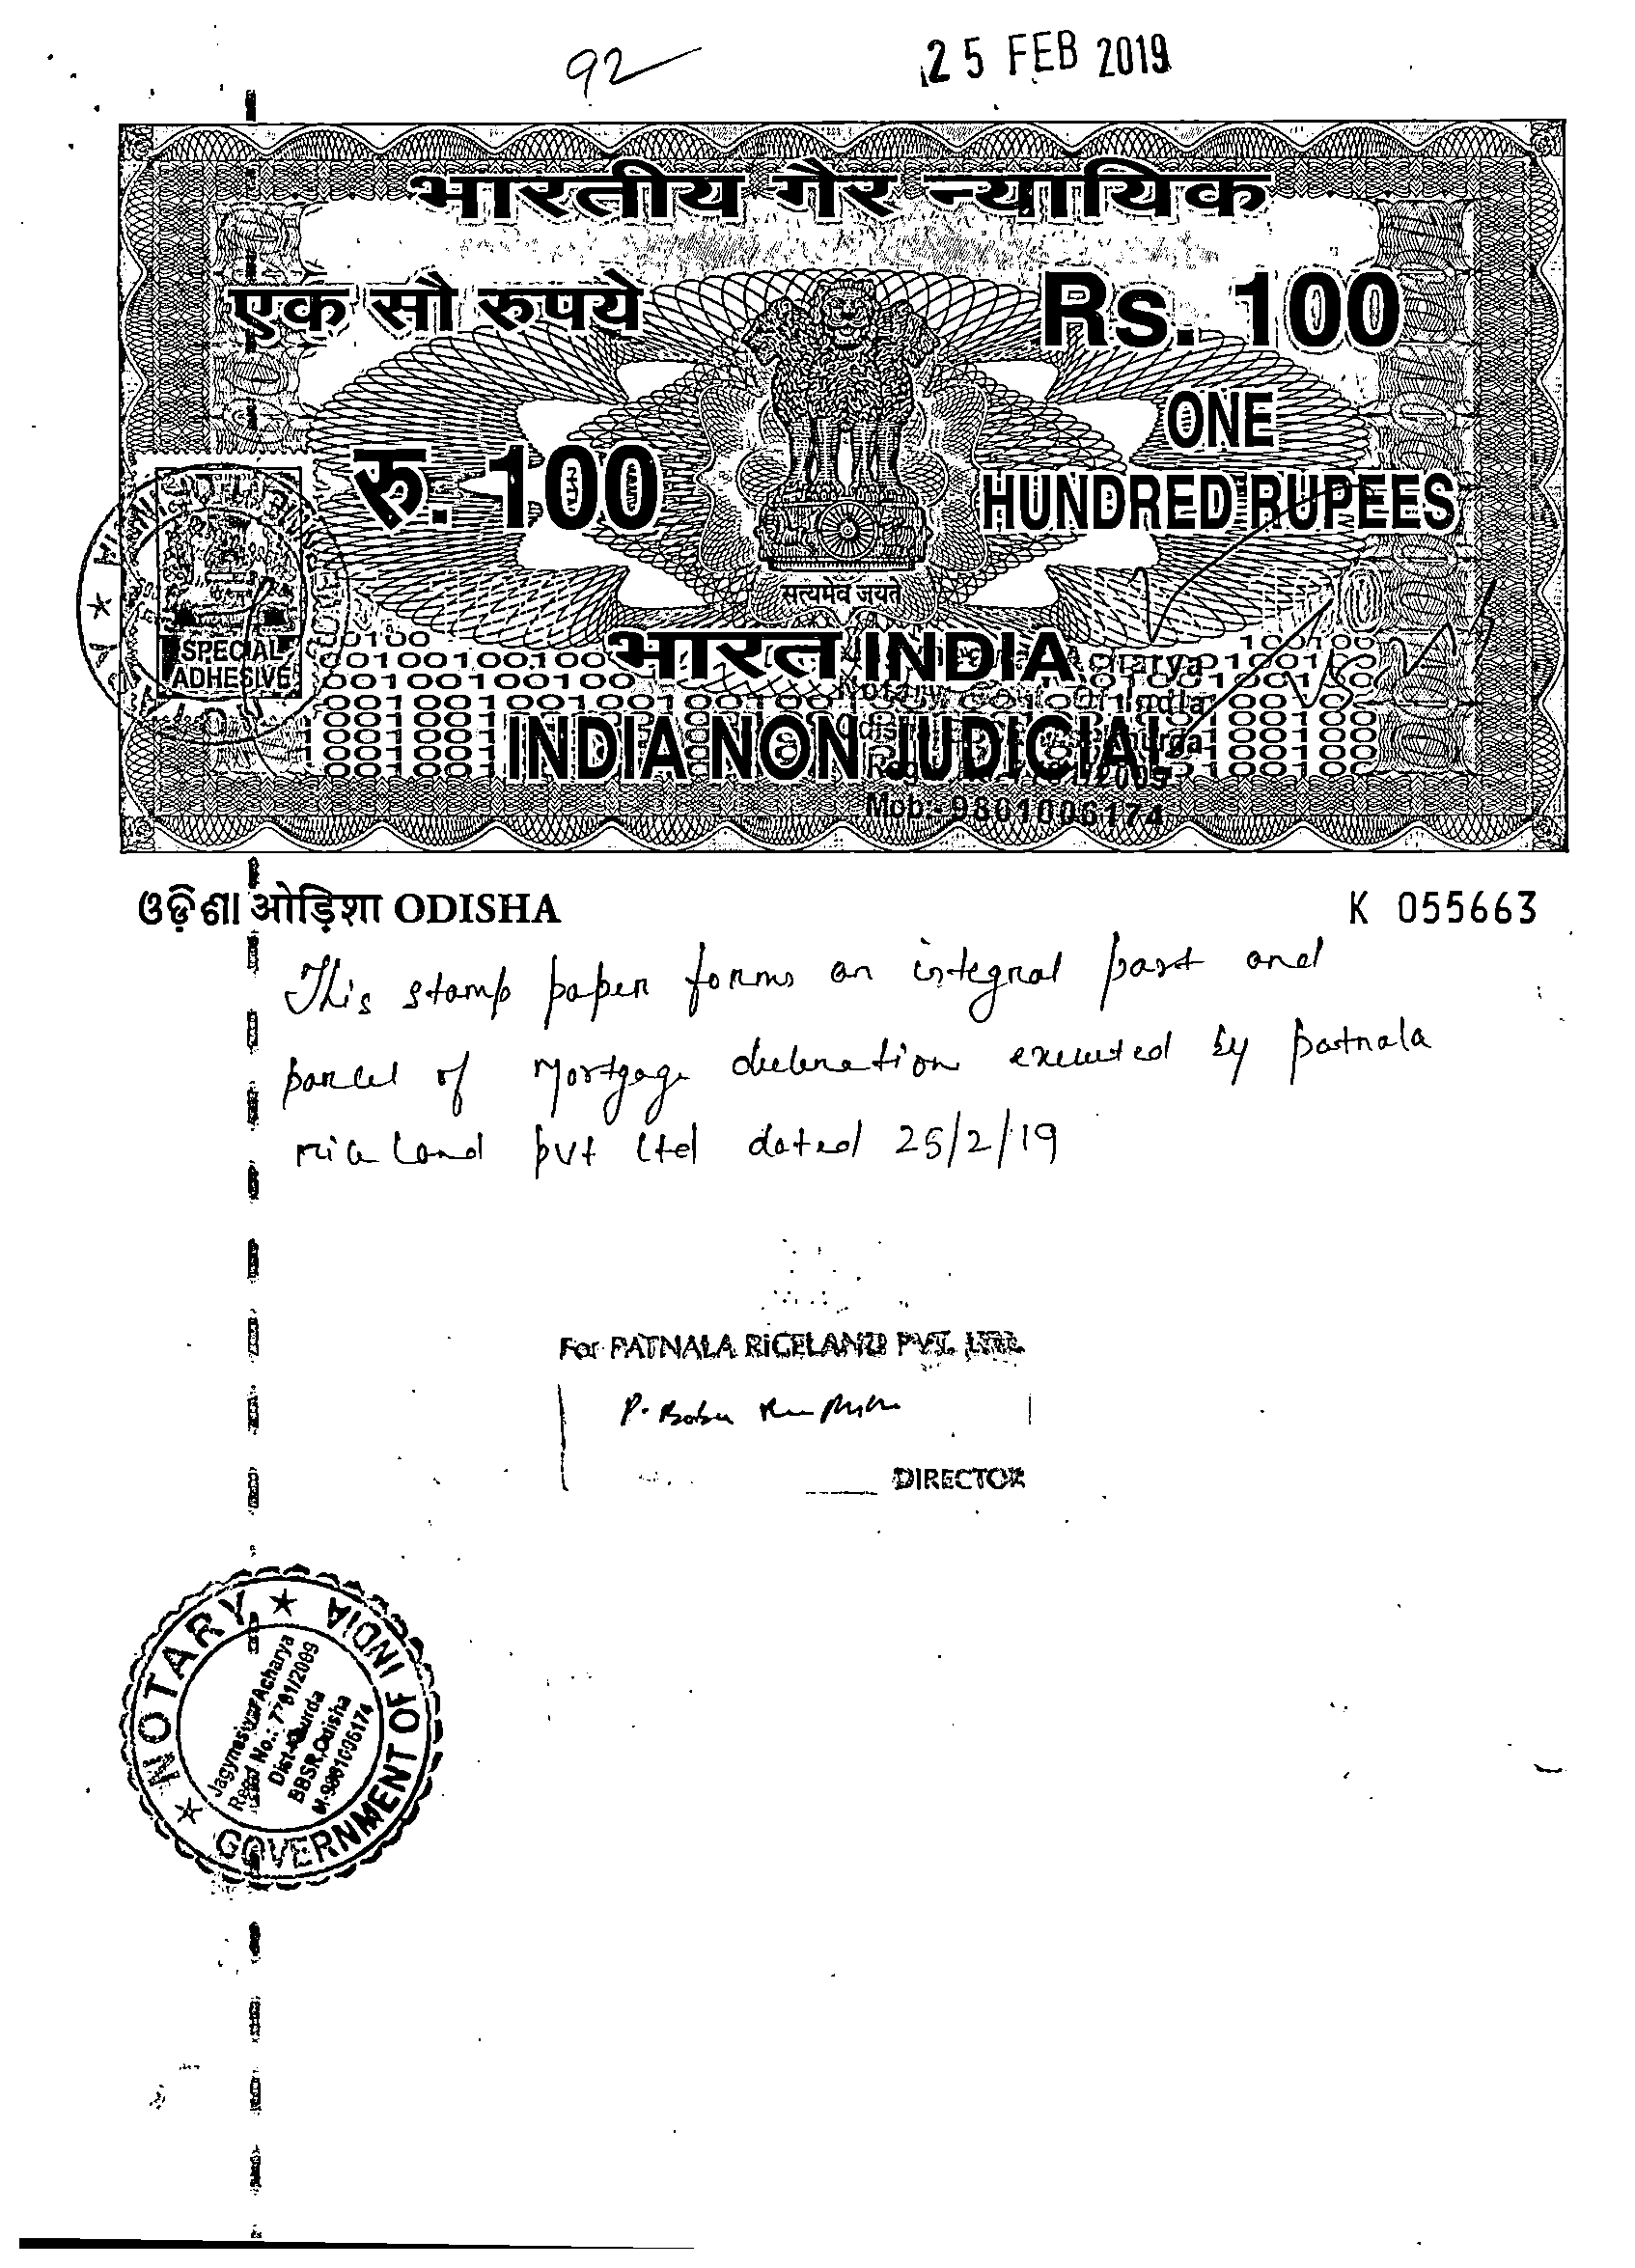 92
25 FEB 2019
भारतीय गैर न्यायिक
एक सौ रुपये
Rs. 100
रु. 100
ONE
HUNDRED RUPEES
सत्यमेव जयते
SPECIAL
ADHESIVE
भारत INDIA
INDIA NON JUDICIAL
Mob:-9861006174
ଓଡ଼ିଶା ओड़िशा ODISHA
K 055663
This stamp paper forms an integral part and
parcel of Mortgage decleration executed by patnala
rice land pvt ltd dated 25/2/19
For PATNALA RICELAND PVT. LTD.
P. Babu
DIRECTOR
NOTARY
GOVERNMENT OF INDIA
Jagyneswar Acharya
Regd No.: 7701/2009
Dist-Khurda
BBSR, Odisha
M-9861006174